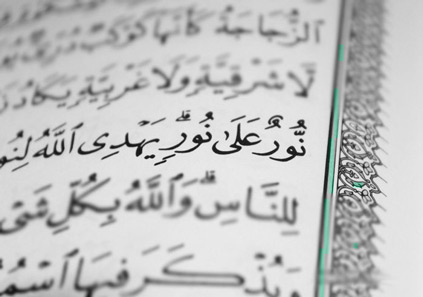 ٱلزُّجَاجَةُ كَأَنَّهَا كَوْكَبٌ دُرِّىٌّ
لَّا شَرْقِيَّةٍ وَلَا غَرْبِيَّةٍ يَكَادُ
نُّورٌ عَلَىٰ نُورٍ ۗ يَهْدِى ٱللَّهُ لِنُو
لِلنَّاسِ ۗ وَٱللَّهُ بِكُلِّ شَىْ
وَيُذْكَرَ فِيهَا ٱسْمُ